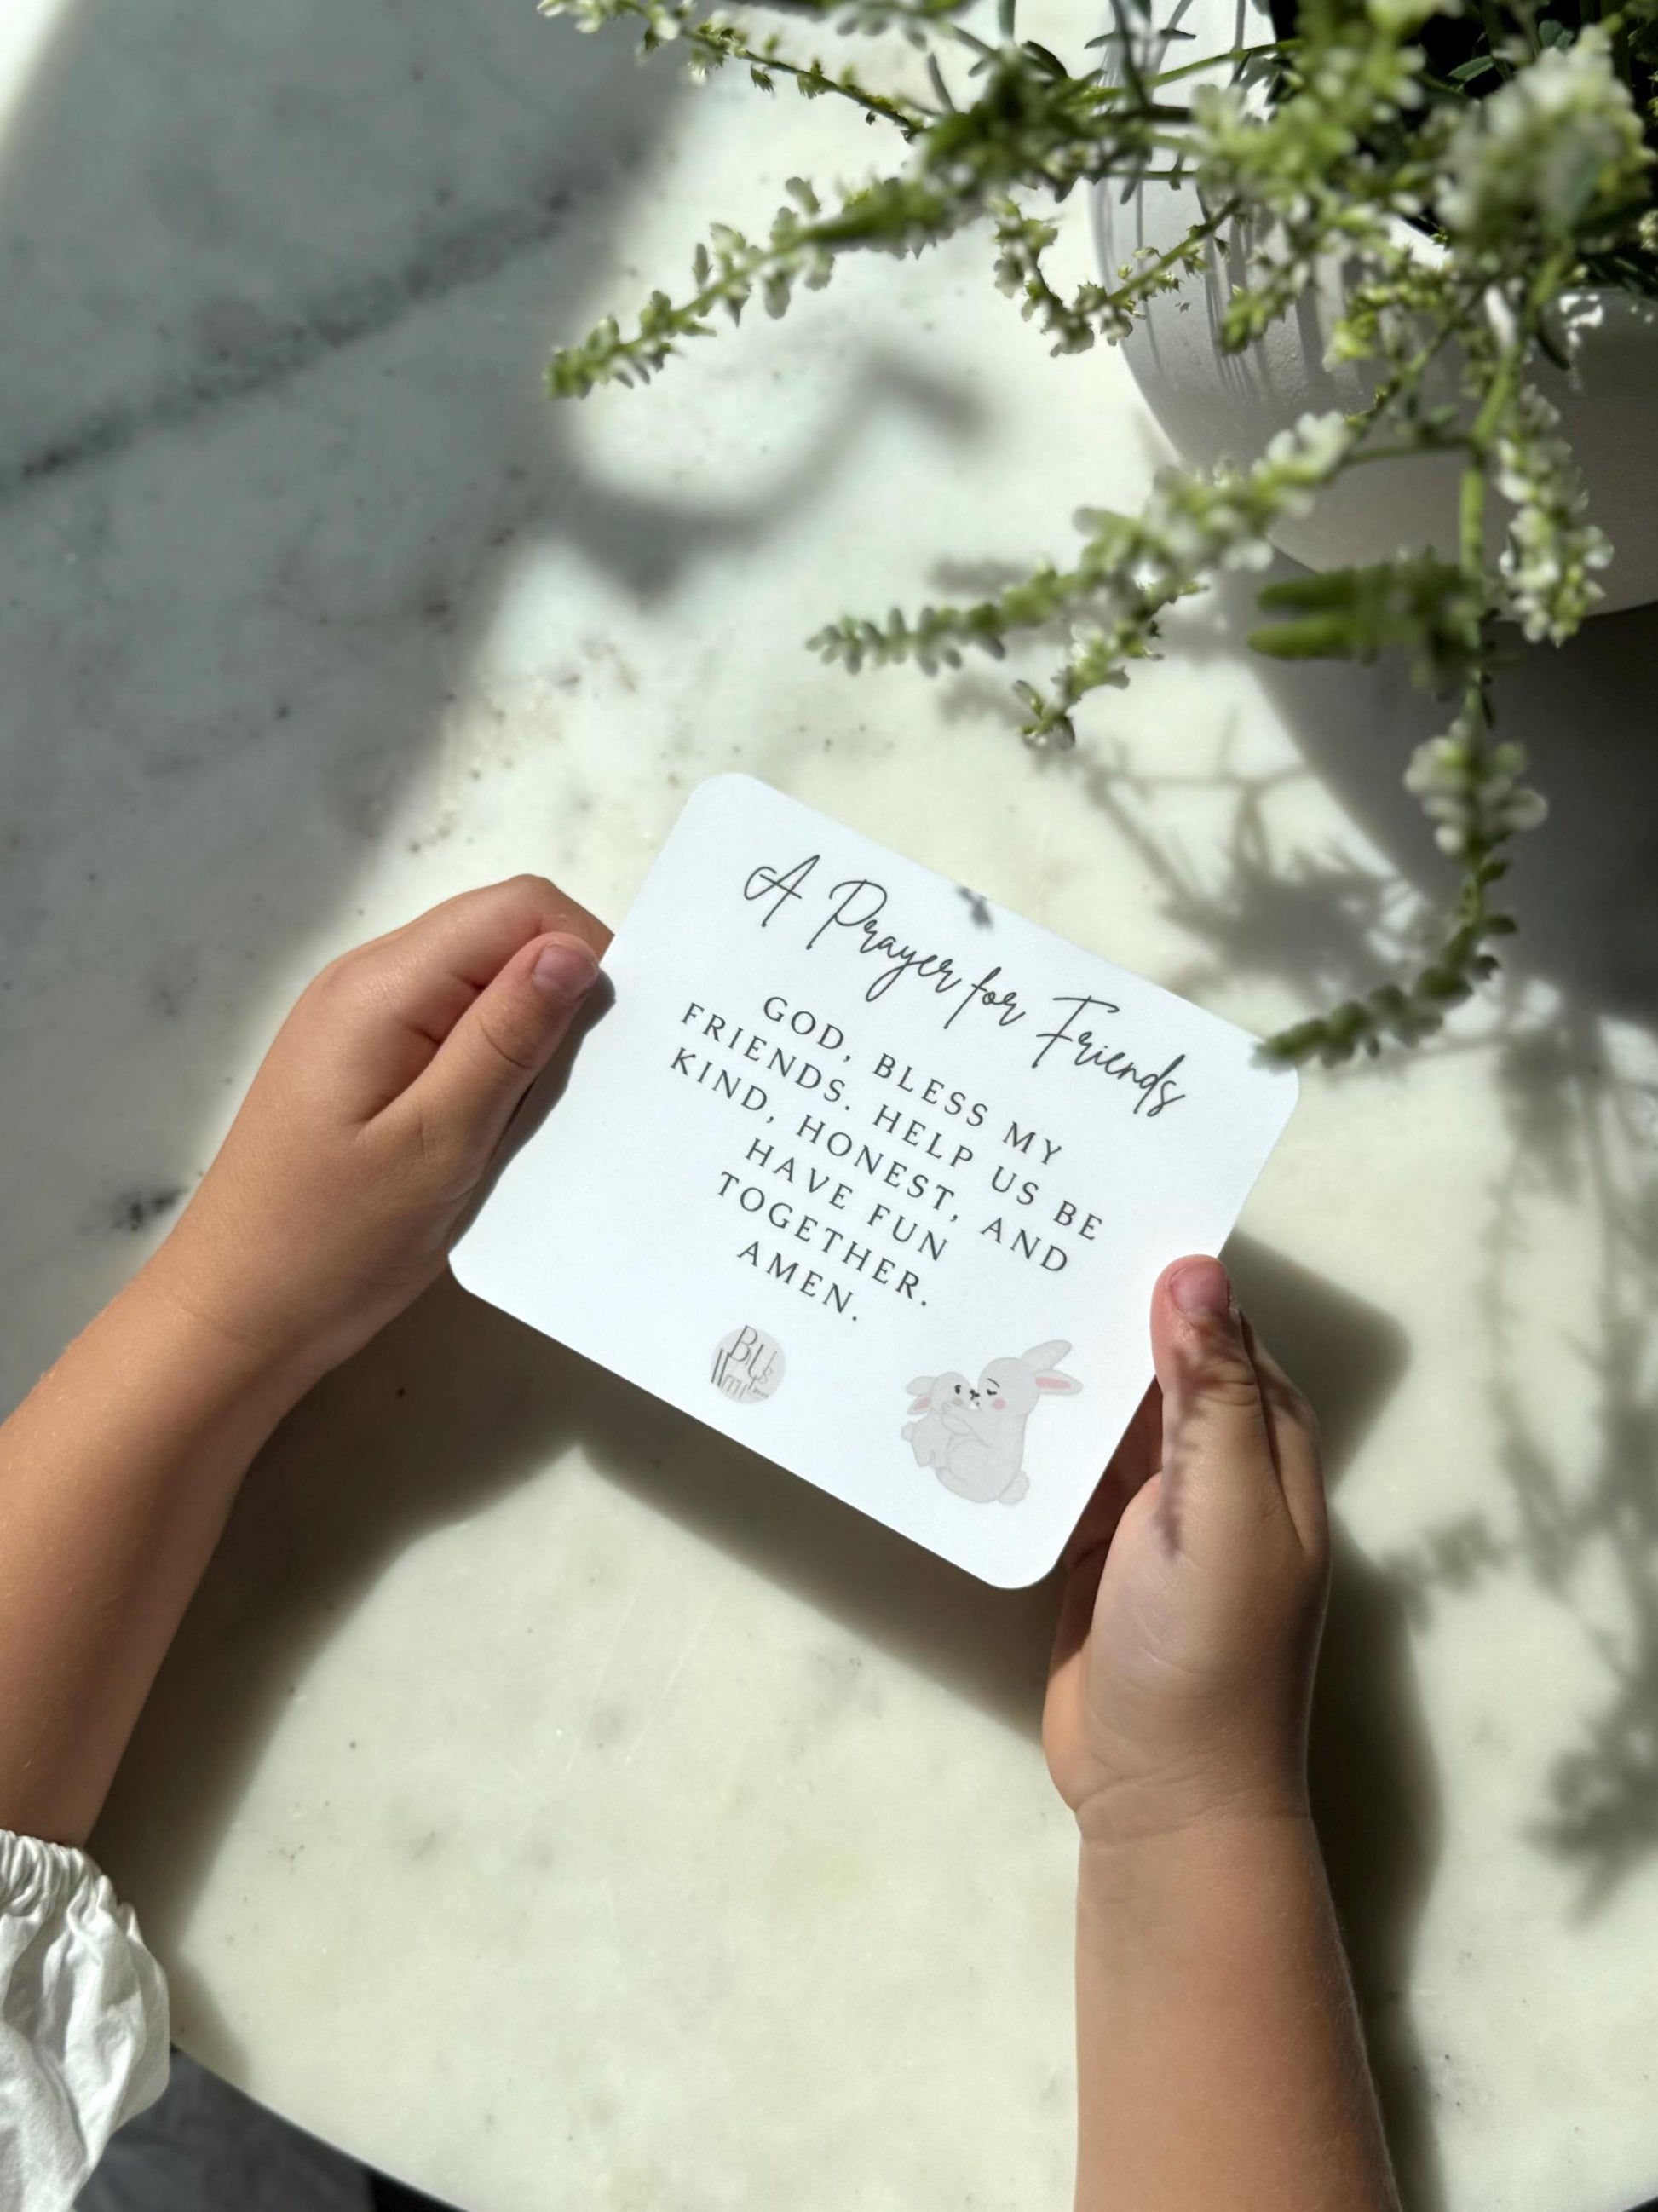 A Prayer for Friends
GOD, BLESS MY
FRIENDS. HELP US BE
KIND, HONEST, AND
HAVE FUN
TOGETHER.
AMEN.